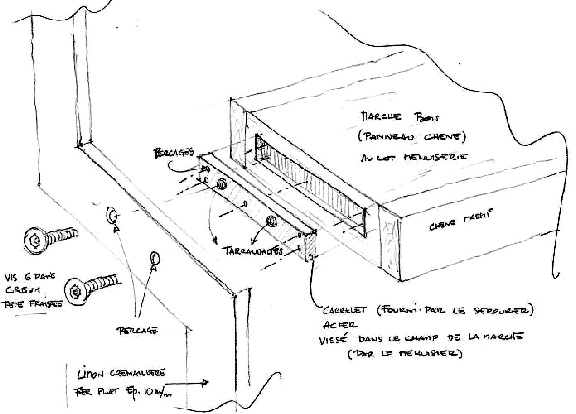 MARCHE BOIS
(PANNEAU CHENE)
AU LOT MENUISERIE
PERCAGES
CHENE MASSIF
TARRAUDAGES
VIS 6 PANS
CREUX
TETE FRAISEE
PERCAGE
CARRELET (FOURNI PAR LE SERRURIER)
ACIER
VISSÉ DANS LE CHAMP DE LA MARCHE
(PAR LE MENUISIER)
LIMON CREMAILLERE
FER PLAT EP. 10 m/m